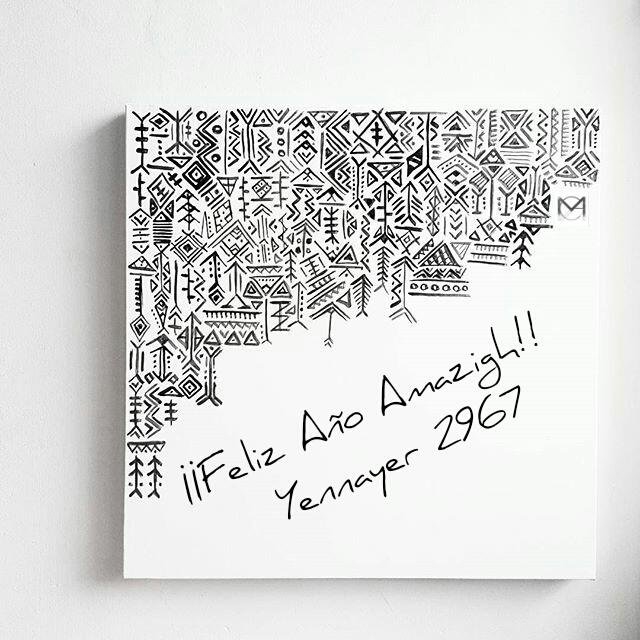 ¡¡Feliz Año Amazigh!!
Yennayer 2967